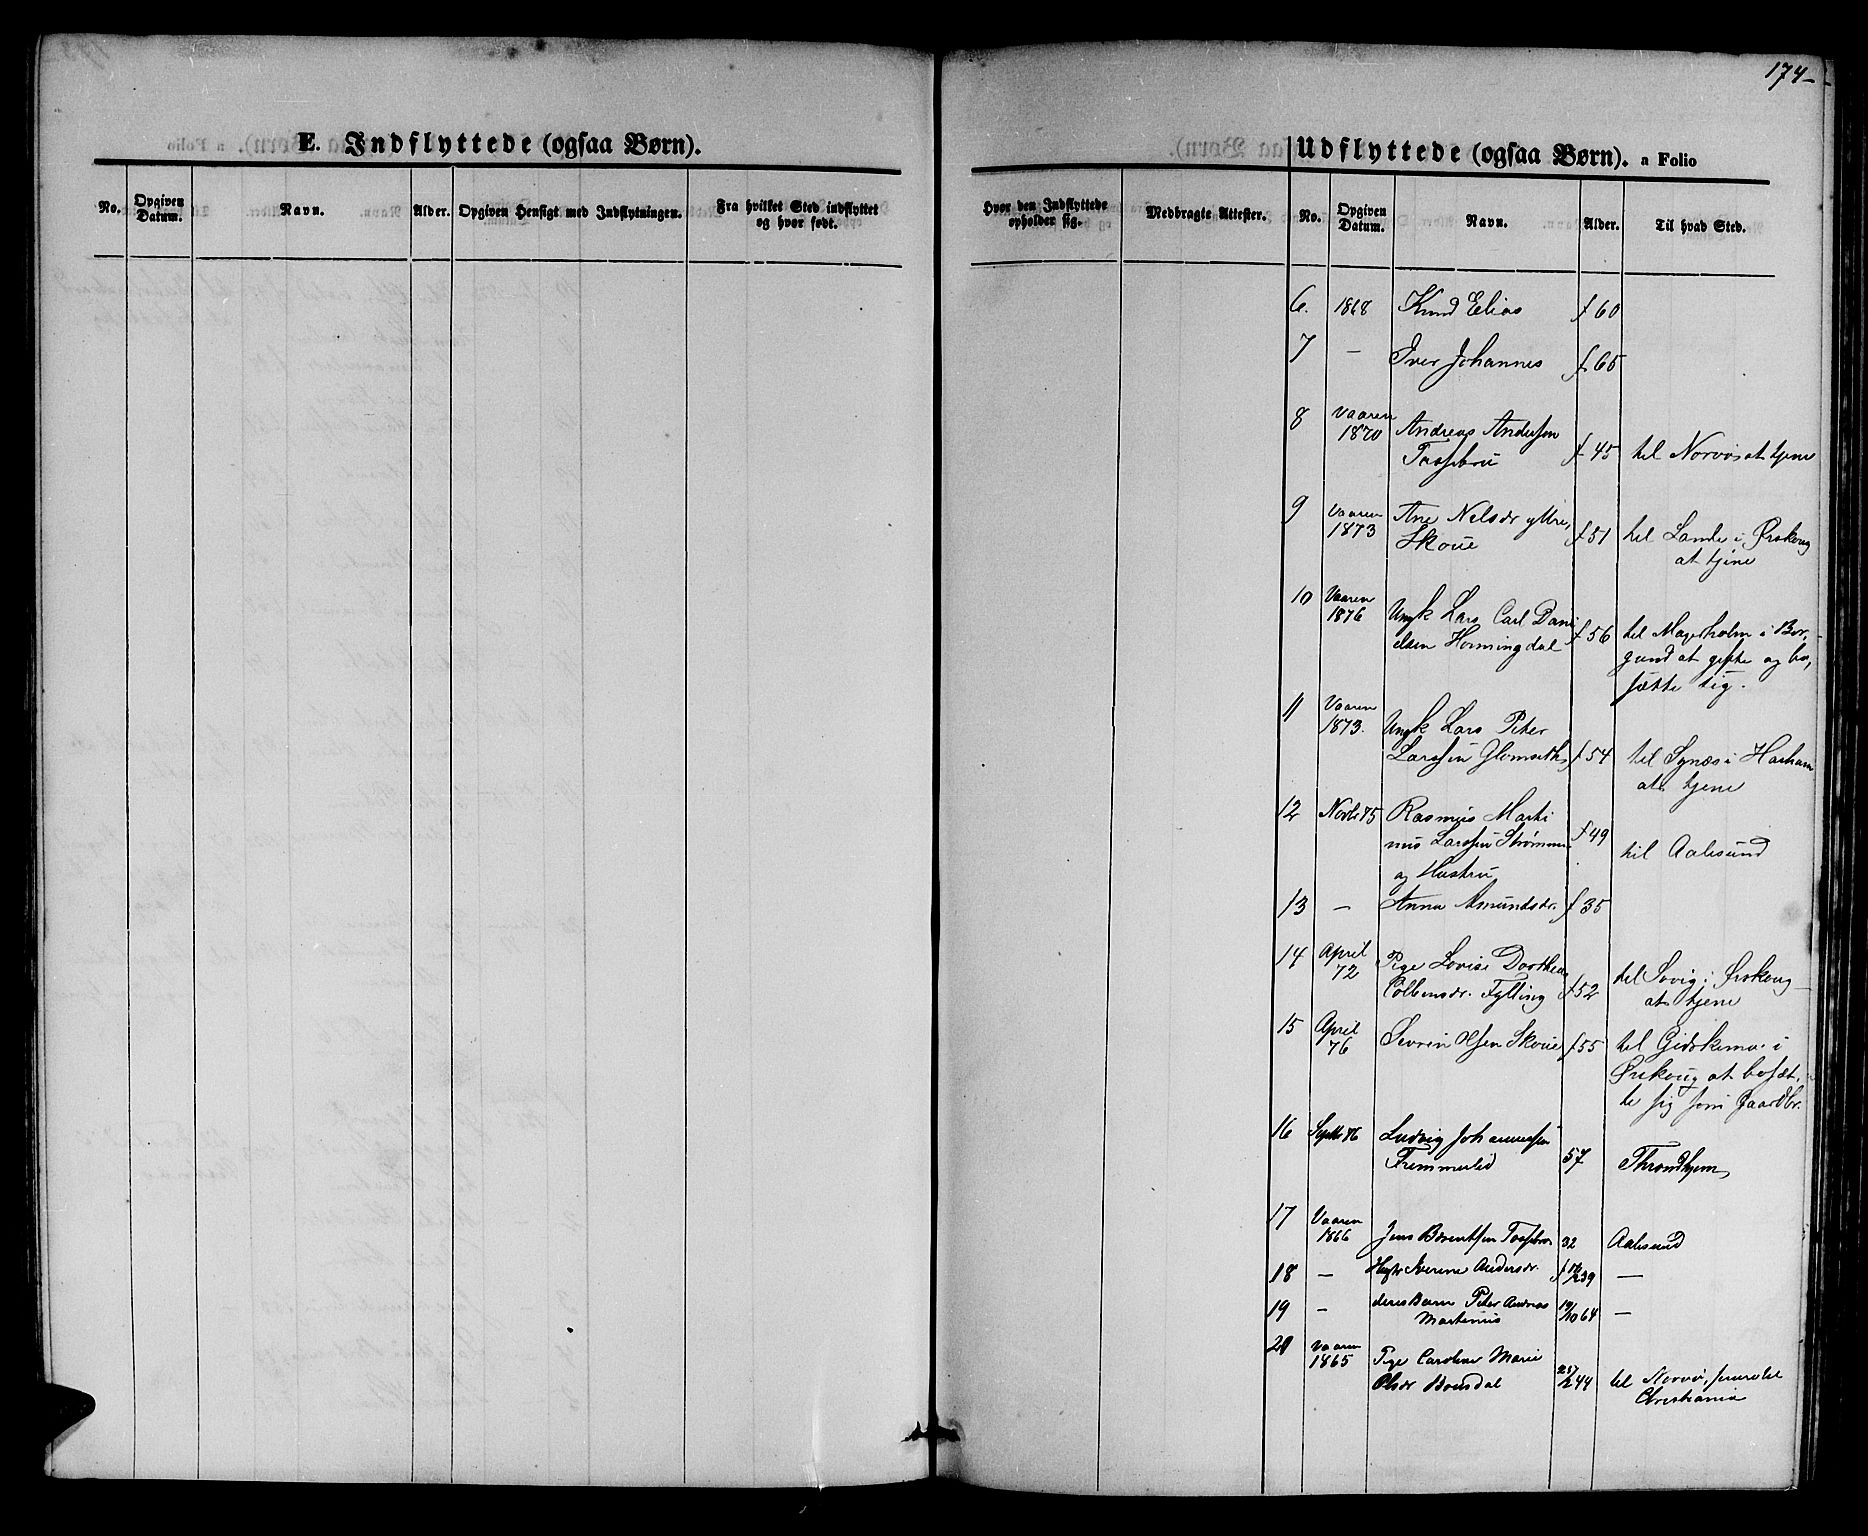 174
E. Indflyttede (ogsaa Børn).
No.
Opgiven Datum.
Navn.
Alder.
Opgiven Hensigt med Indflytningen.
Fra hvilket Sted indflyttet og hvor født.
Udflyttede (ogsaa Børn). a Folio
Hvor den Indflyttede opholder sig.
Medbragte Attester.
No.
Opgiven Datum.
Navn.
Alder.
Til hvad Sted.
6. 1868 Knud Elias f 60
7 — Iver Johannes f 65
8 Vaaren
1870 Andreas Andersen
f 45 til Norvø at tjene
9 Vaaren Ane Nelsdr yttre
1873 Skoue f 51 til Lande i Ørskoug
at tjene
10 Vaaren
1876 Ungk Lars Carl Dani
elsen Hornningdal f 56 til Magerholm i Bor,
gund at gifte og be,
sætte sig.
11 Vaaren
1873. Ungk Lars Peter
Larssen Glomseth f 54 til Synæs i Harham
at tjene
12 Novbr 75 Rasmus Marti
nus Larssen Strømmen f 49 til Aalesund
og Hustru
13 — Anna Amundsdr. f 35
14 April
72 Pige Lovise Dorthea
Colbensdr. Fylling f 52 til Søvig i Ørskoug
at tjene
15 April
76 Severin Skoue f 55 til Gidskemo i
Ørskoug at bosæt,
te sig som Gaardbr.
16 Septbr 76 Ludvig Johannessen
Fremmerlid 57 Throndhjem
17 Vaaren
1866 Jens Berentsen 32 Aalesund
18 — Iverine Andersdr. 39 —
19 — deres Barn Peter Andreas 19/10 64 —
Martinus
20 Vaaren
1865 Pige Caroline Marie
Olsdr 44 til Norvø, senere til
Christiania